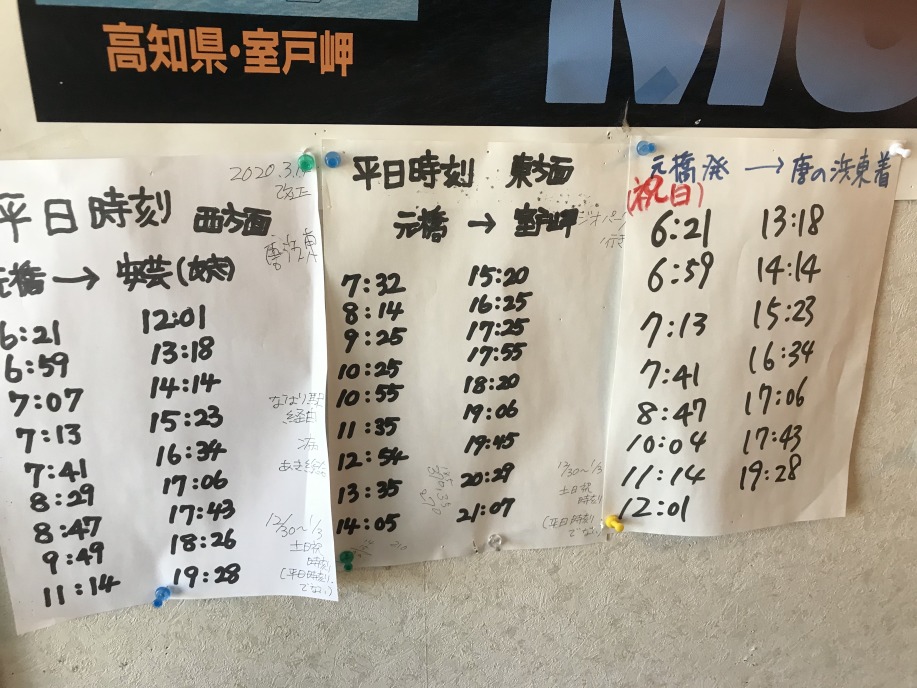 高知県・室戸岬
2020.3.
改正
平日時刻 西方面
元橋 → 安芸(病院)
6:21 12:01
6:59 13:18
7:07 14:14
7:13 15:23
7:41 16:34
8:29 17:06
8:47 17:43
9:49 18:26
11:14 19:28
なはり駅
経由
12/30〜1/3
土日祝
時刻
(平日時刻
でない)
平日時刻 東方面
元橋 → 室戸岬
7:32 15:20
8:14 16:25
9:25 17:25
10:25 17:55
10:55 18:20
11:35 19:06
12:54 19:45
13:35 20:29
14:05 21:07
12/30〜1/3
土日祝
時刻
(平日時刻
でない)
元橋発 → 唐の浜東着
(祝日)
6:21 13:18
6:59 14:14
7:13 15:23
7:41 16:34
8:47 17:06
10:04 17:43
11:14 19:28
12:01